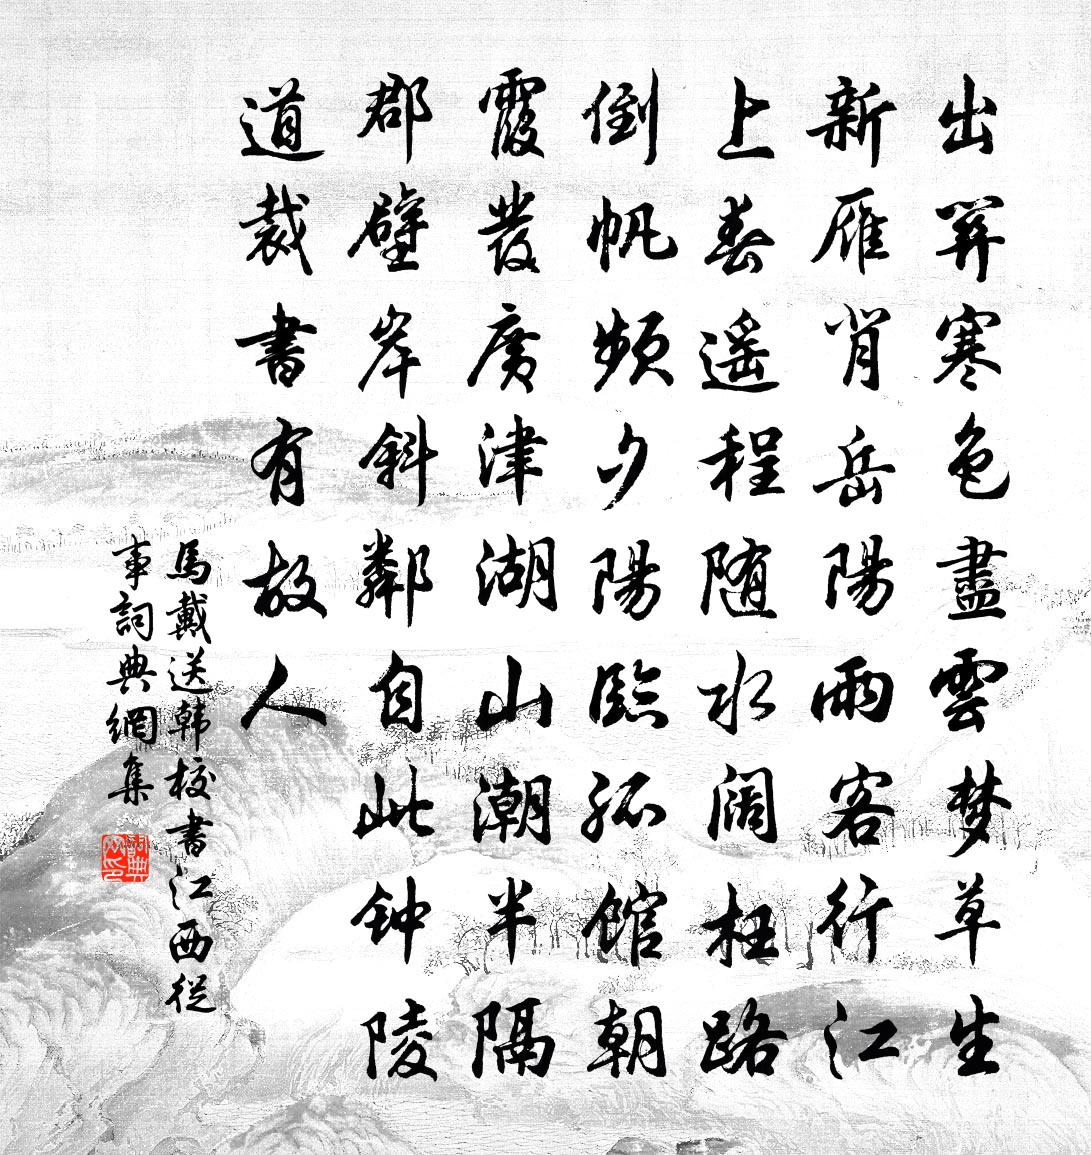 出關寒色盡雲梦草生
新雁背岳陽雨客行江
上春遥程随水阔枉路
倒帆频夕陽臨孤館朝
霞發廣津湖山潮半隔
郡壁岸斜鄰自此钟陵
道裁書有故人
馬戴送韩校書江西從
事詞典網集